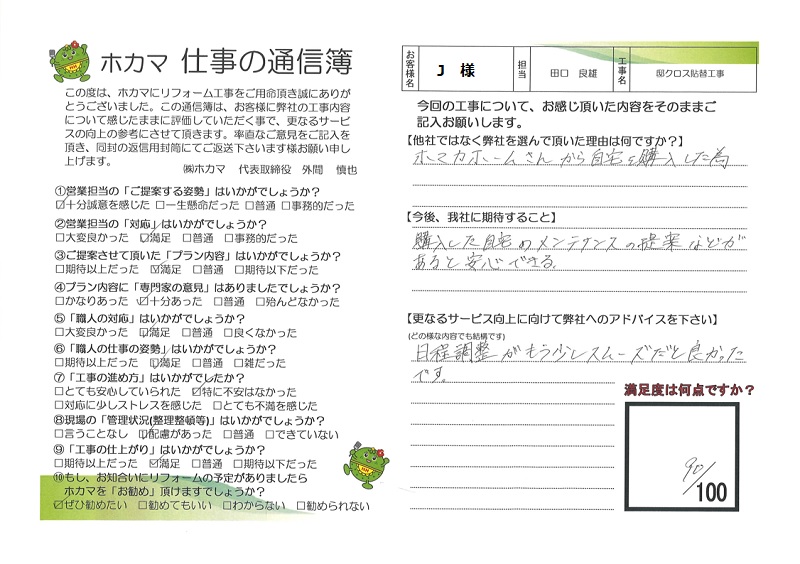 ホカマ 仕事の通信簿
この度は、ホカマにリフォーム工事をご用命頂き誠にありが
とうございました。この通信簿は、お客様に弊社の工事内容
について感じたままに評価していただく事で、更なるサービ
スの向上の参考にさせて頂きます。率直なご意見をご記入を
頂き、同封の返信用封筒にてご返送下さいます様お願い申し
上げます。
㈱ホカマ 代表取締役 外間 慎也
①営業担当の「ご提案する姿勢」はいかがでしょうか？
☑十分誠意を感じた □一生懸命だった □普通 □事務的だった
②営業担当の「対応」はいかがでしょうか？
□大変良かった ☑満足 □普通 □事務的だった
③ご提案させて頂いた「プラン内容」はいかがでしょうか？
□期待以上だった ☑満足 □普通 □期待以下だった
④プラン内容に「専門家の意見」はありましたでしょうか？
□かなりあった ☑十分あった □普通 □殆んどなかった
⑤「職人の対応」はいかがでしょうか？
□大変良かった ☑満足 □普通 □良くなかった
⑥「職人の仕事の姿勢」はいかがでしょうか？
□期待以上だった ☑満足 □普通 □雑だった
⑦「工事の進め方」はいかがでしたか？
□とても安心していられた ☑特に不安はなかった
□対応に少しストレスを感じた □とても不満を感じた
⑧現場の「管理状況(整理整頓等)」はいかがでしょうか？
□言うことなし ☑配慮があった □普通 □できていない
⑨「工事の仕上がり」はいかがでしょうか？
□期待以上だった ☑満足 □普通 □期待以下だった
⑩もし、お知合いにリフォームの予定がありましたら
ホカマを「お勧め」頂けますでしょうか？
☑ぜひ勧めたい □勧めてもいい □わからない □勧められない
お客様名 J 様 担当 田口 良雄 工事名 邸クロス貼替工事
今回の工事について、お感じ頂いた内容をそのままご
記入お願いします。
【他社ではなく弊社を選んで頂いた理由は何ですか？】
ホマカホームさんから自宅を購入した為
【今後、我社に期待すること】
購入した自宅のメンテナンスの提案などが
あると安心できる。
【更なるサービス向上に向けて弊社へのアドバイスを下さい】
(どの様な内容でも結構です)
日程調整がもう少しスムーズだと良かった
です。
満足度は何点ですか？
90/100